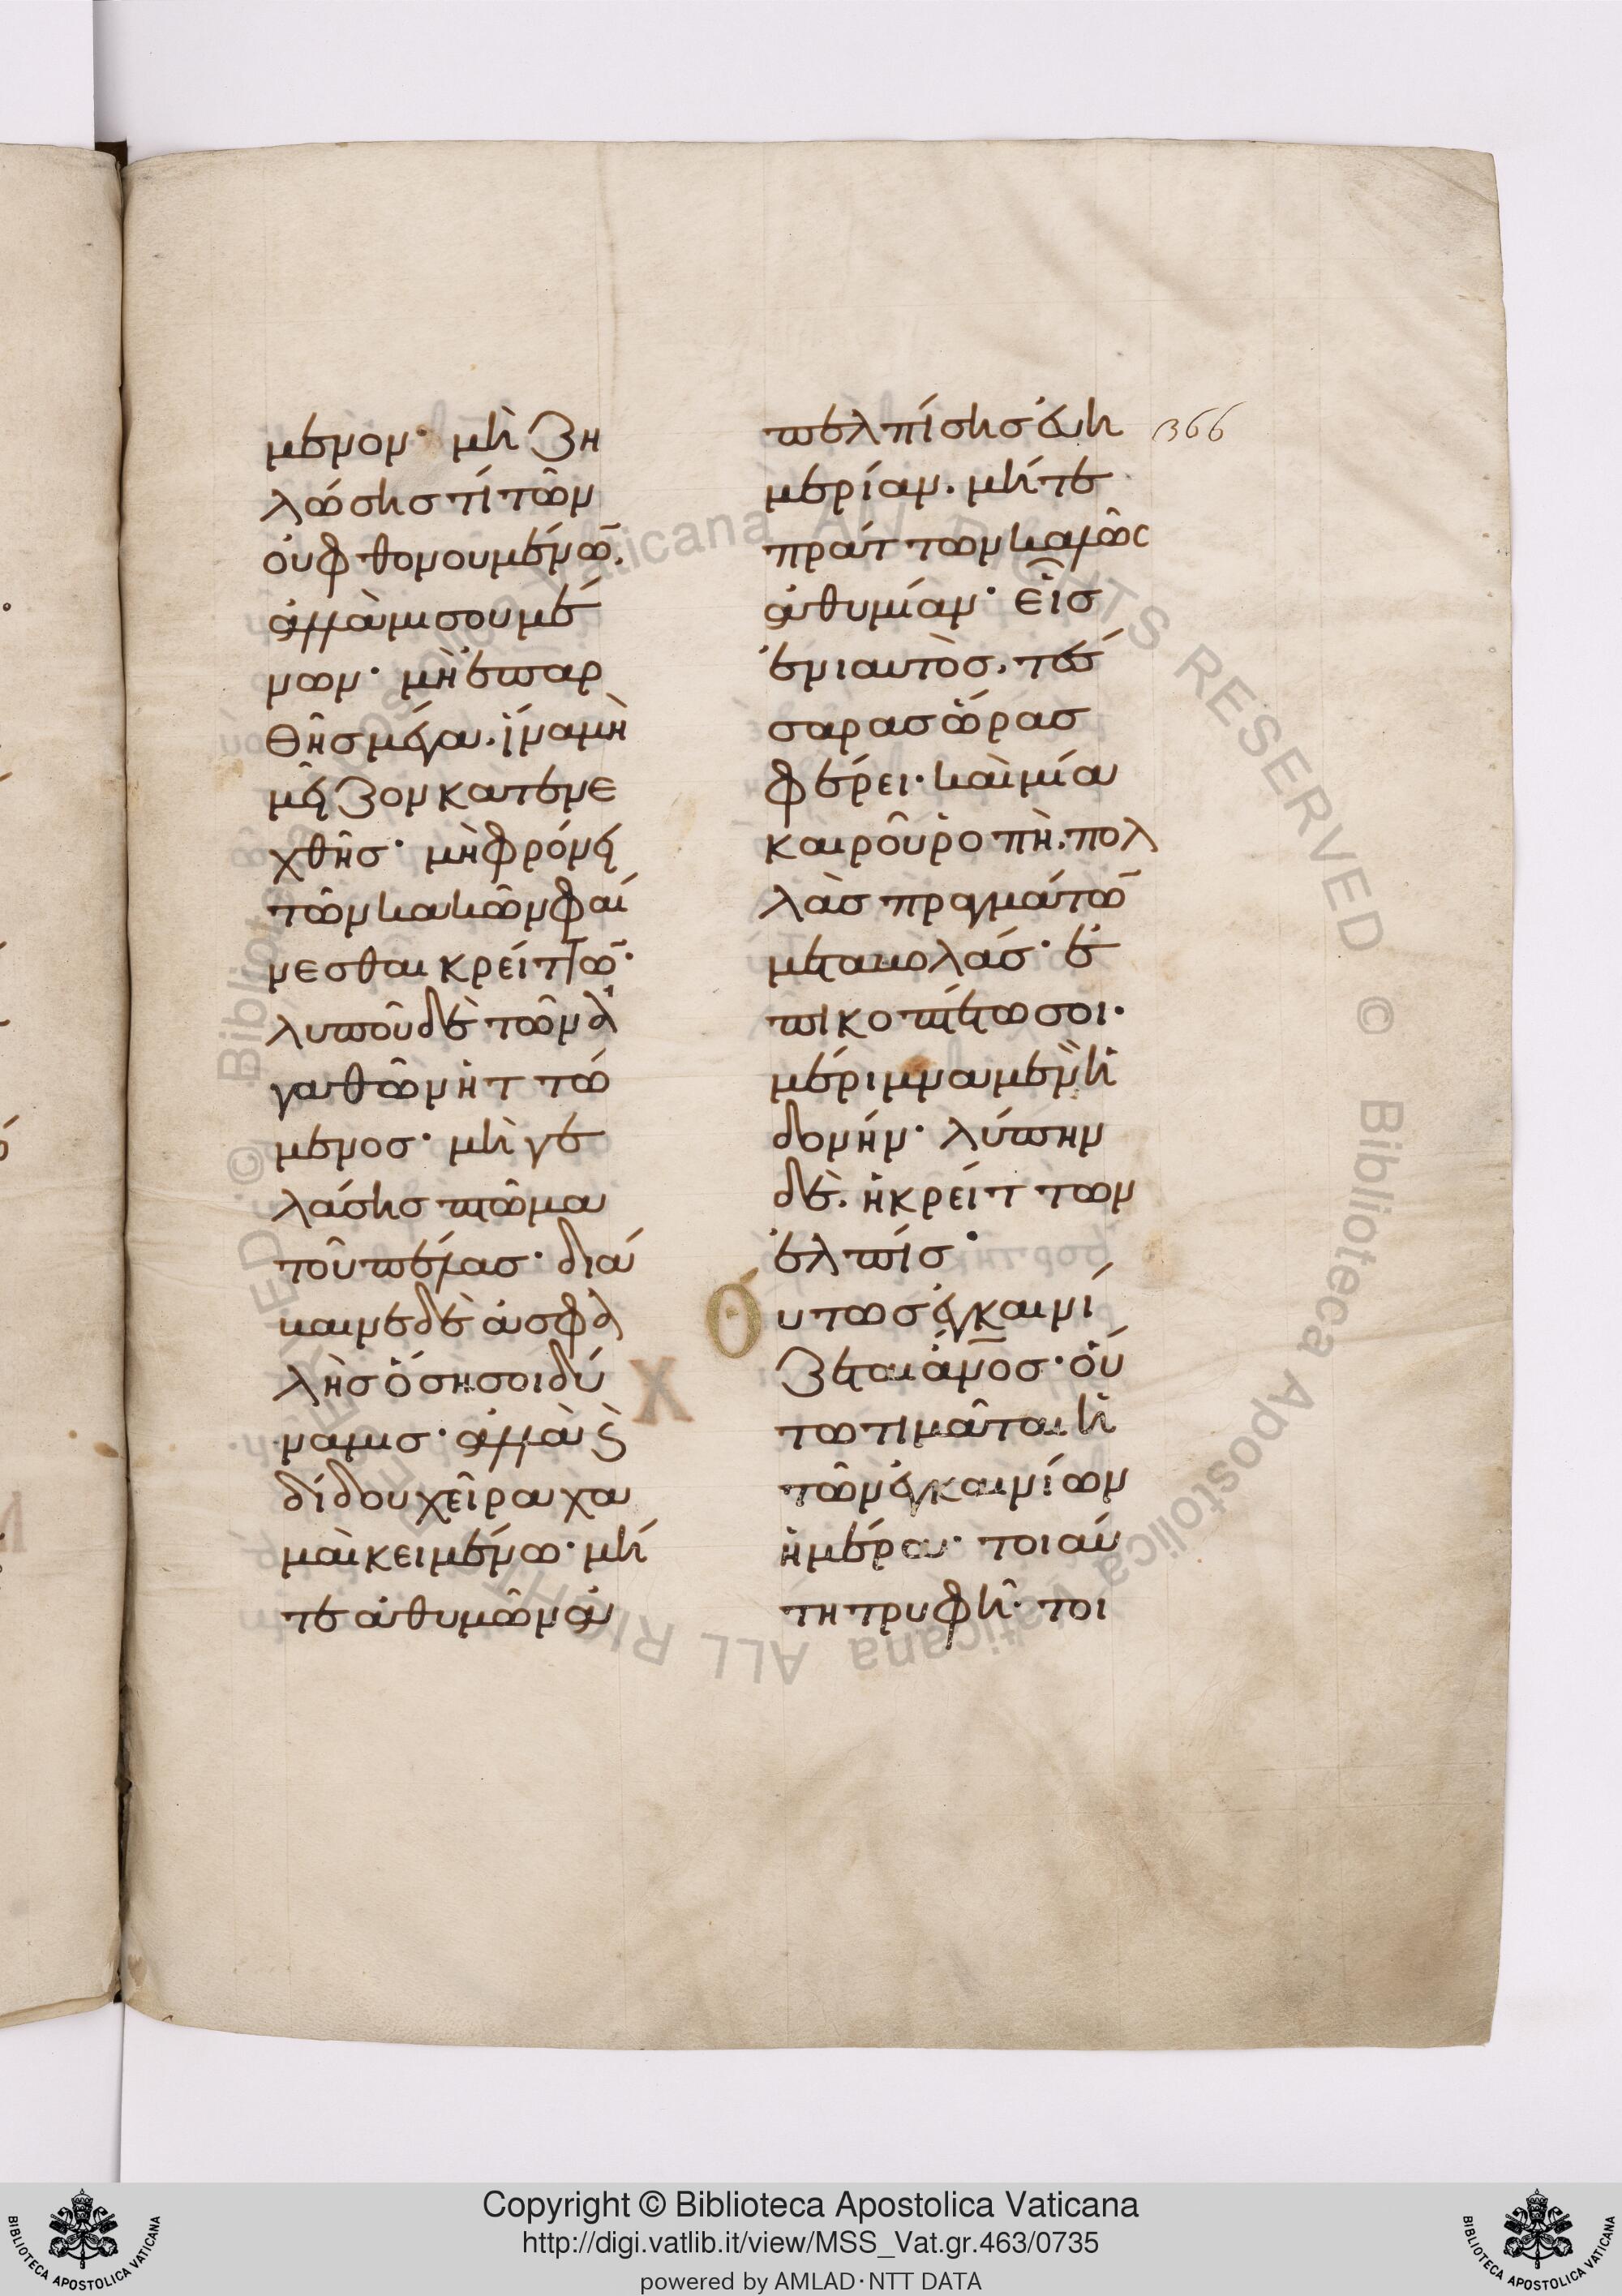 μενον· μὴ ζη
λώσης τὶ τῶν
οὐ φθονουμένω̅.
ἀλλὰ μισουμέ
νων· μὴ ἐπαρ
θῆς μέγα. ἵνα μὴ
μεῖζον κατενε
χθῆς· μὴ φρόνει
τῶν κακῶν φαί
νεσθαι κρείττω̅·
λυποῦ δὲ τῶν ἀ
γαθῶν ἡττώ
μενος· μὴ γε
λάσης πτῶμα
τοῦ πέλας· διά
βαινε δὲ ἀσφα
λὴς ὅση σοι δύ
ναμις· ἀλλὰ καὶ
δίδου χεῖρα χα
μαὶ κειμένω· μή
τε ἀθυμῶν ἀ
πελπίσης εὐη
μερίαν. μήτε
πράττων καλῶς
ἀθυμίαν· εἷς
ἐνιαυτὸς. τέσ
σαρας ὥρας
φέρει· καὶ μία
καιροῦ ῥοπὴ. πολ
λὰς πραγμάτω̅
μεταβολάς· ἐ
πικοπτέτω σοι·
μέριμνα μὲν ἡ
δονήν· λύπην
δὲ. ἡ κρείττων
ἐλπίς·
Οὕτως ἐγκαινί
ζεται α̅ν̅ο̅ς· οὕ
τω τιμᾶται ἡ
τῶν ἐγκαινίων
ἡμέρα· τοιαύ
τη τρυφῆ· τοι
366
Χ
Copyright © Biblioteca Apostolica Vaticana
http://digi.vatlib.it/view/MSS_Vat.gr.463/0735
powered by AMLAD·NTT DATA
BIBLIOTECA APOSTOLICA VATICANA
BIBLIOTECA APOSTOLICA VATICANA